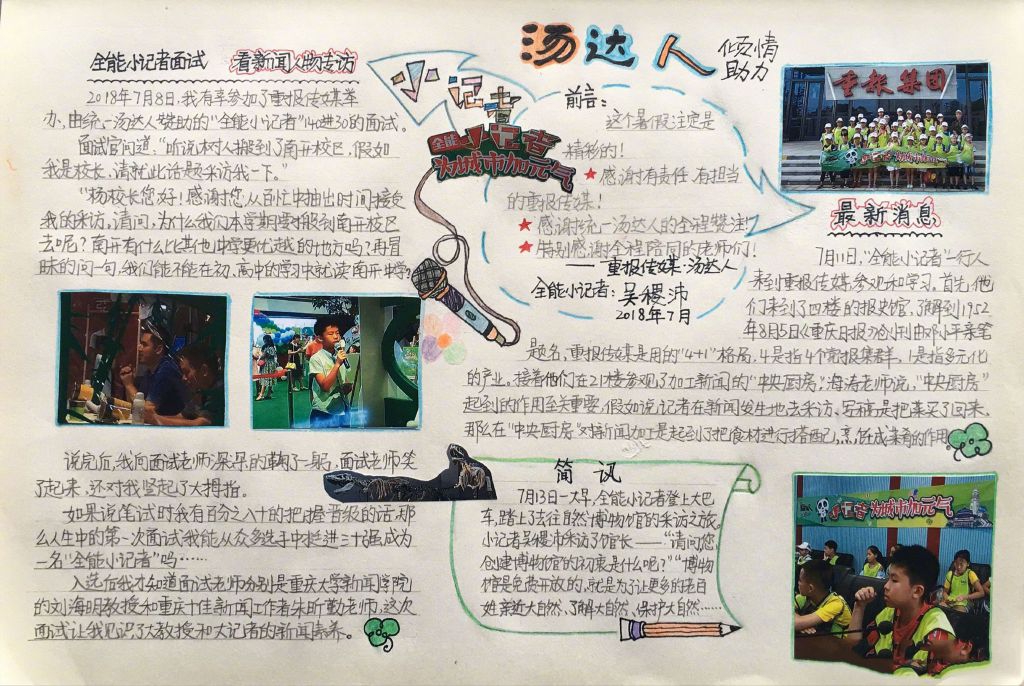 汤达人 倾情
助力
小记者
全能小记者
为城市加元气
全能小记者面试 看新闻人物专访
2018年7月8日,我有幸参加了重报传媒举
办,由统一汤达人赞助的“全能小记者”140进30的面试。
面试官问道:“听说树人搬到了南开校区,假如
我是校长,请就此话题采访我一下。”
“杨校长您好!感谢您从百忙中抽出时间接受
我的采访,请问,为什么我们本学期要搬到南开校区
去呢?南开有什么比其他中学更优越的地方吗?再冒
昧的问一句,我们能不能在初、高中的学习中就读南开中学?
说完后,我向面试老师深深的鞠了一躬,面试老师笑
了起来,还对我竖起了大拇指。
如果说笔试时我有百分之八十的把握晋级的话,那
么人生中的第一次面试我能从众多选手中挺进三十强成为
一名“全能小记者”吗……
入选后我才知道面试老师分别是重庆大学新闻学院
的刘海明教授和重庆十佳新闻工作者朱昕勤老师,这次
面试让我见识了大教授和大记者的新闻素养。
前言:
这个暑假注定是
精彩的!
★感谢有责任、有担当
的重报传媒!
★感谢统一汤达人的全程赞注!
★特别感谢全程陪同的老师们!
——重报传媒·汤达人
全能小记者:吴稷沛
2018年7月
重报集团
最新消息
7月11日,“全能小记者”一行人
来到重报传媒参观和学习。首先,他
们来到了四楼的报史馆,了解到1952
年8月5日《重庆日报》创刊由邓小平亲笔
题名,重报传媒是用的“4+1”格局,4是指4个党报集群,1是指多元化
的产业。接着他们在21楼参观了加工新闻的“中央厨房”,海涛老师说,“中央厨房”
起到的作用至关重要,假如说,记者在新闻发生地去采访、写稿是把菜买了回来,
那么在“中央厨房”对新闻加工是起到了把食材进行搭配,烹饪成菜肴的作用。
简讯
7月13日一大早,全能小记者登上大巴
车,踏上了去往自然博物馆的采访之旅。
小记者吴稷沛采访了馆长——“请问您,
创建博物馆的初衷是什么呢?”“博物
馆是免费开放的,就是为了让更多的老百
姓亲近大自然、了解大自然、保护大自然……
小记者 为城市加元气